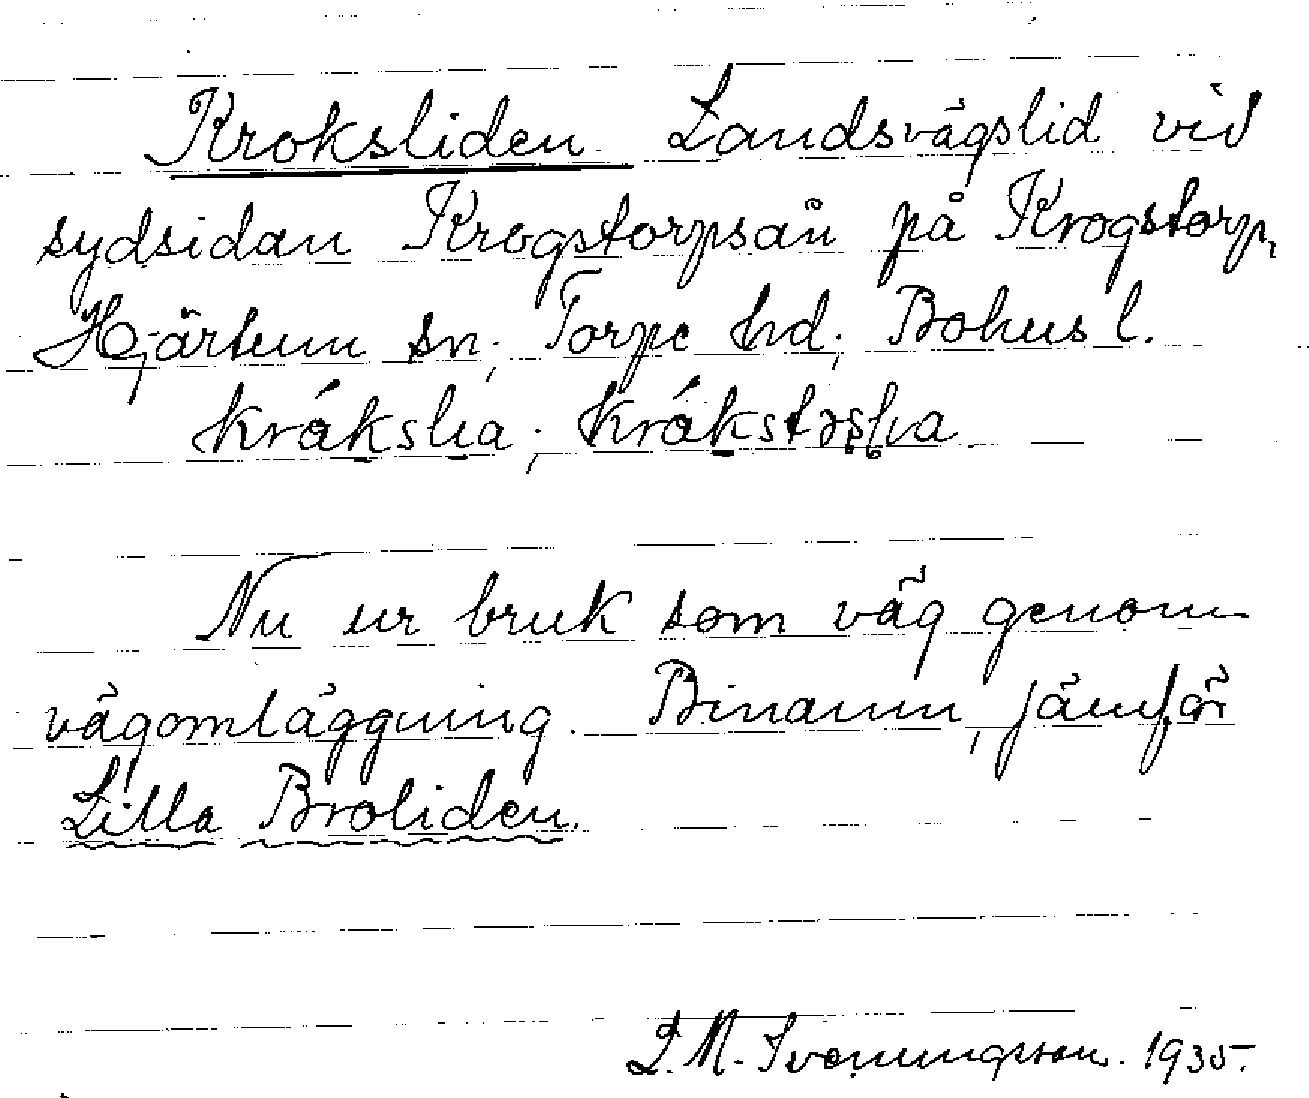 Kroksliden Landsvägslid vid
sydsidan Krogstorpsån på Krogstorp,
Hjärtum sn; Torpe hd; Bohus l.
Nu ur bruk som väg genom
vägomläggning. Binamn, jämför
Lilla Broliden.
J.M. Svenningson. 1935.